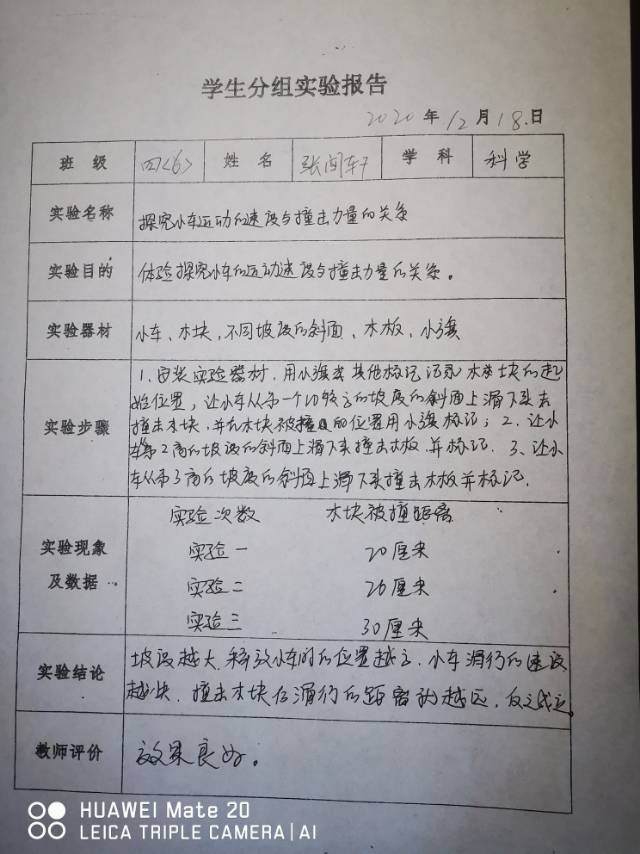 学生分组实验报告
2020年12月18日
班级 四<6> 姓名 张闰轩 学科 科学
实验名称 探究小车运动的速度与撞击力量的关系
实验目的 体验探究小车的运动速度与撞击力量的关系。
实验器材 小车、木块、不同坡度的斜面、木板、小旗
实验步骤
1、安装实验器材,用小旗或其他标记记录木块的起
始位置,让小车从第一个比较高的坡度的斜面上滑下来去
撞击木块,并在木块被撞的位置用小旗标记;2、让小
车第2高的坡度的斜面上滑下来撞击木板并标记.3、让小
车从第3高的坡度的斜面上滑下来撞击木板并标记.
实验现象及数据
实验次数 木块被撞距离
实验一 20厘米
实验二 26厘米
实验三 30厘米
实验结论
坡度越大,释放小车时的位置越高,小车滑行的速度
越快.撞击木块后滑行的距离就越远,反之成立。
教师评价 效果良好。
HUAWEI Mate 20
LEICA TRIPLE CAMERA | AI